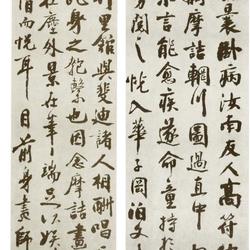 曩卧病汝南友人高符
摩詰輞川圖過直中
示言能愈疾遂命童持於
旁閱之恍入華子岡泊文
里館與斐迪諸人相酬唱
此身之匏繫也因念摩詰畫
在塵外景在筆端足以娛
情而悅耳目前身畫師